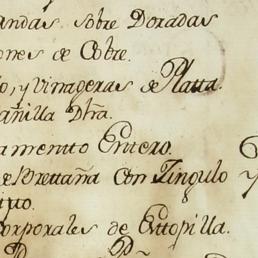 andas sobre Doradas
ones de Cobre.
o, y Vinageras de Platta.
anilla Dtña.
amento Entero.
e Brettaña con Zingulo y
ipo.
corporales de Esttopilla.